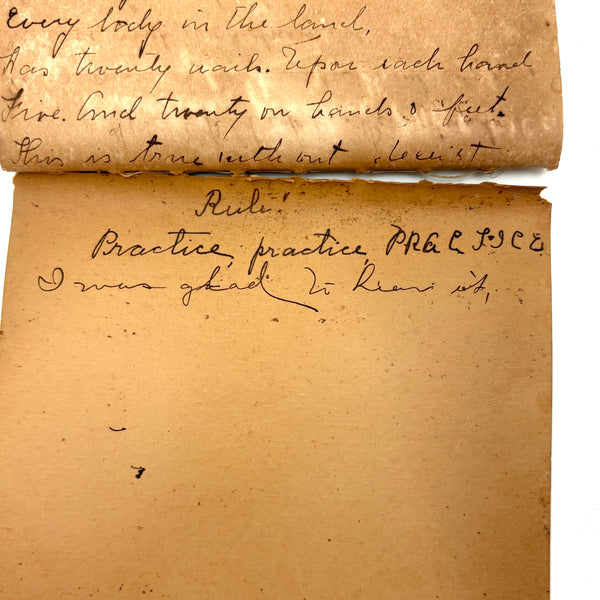 Every body in the land,
Has twenty nails. Upon each hand
Five. And twenty on hands & feet.
This is true without deceit.
Rule!
Practice, practice, PRACTICE
I was glad to hear it,